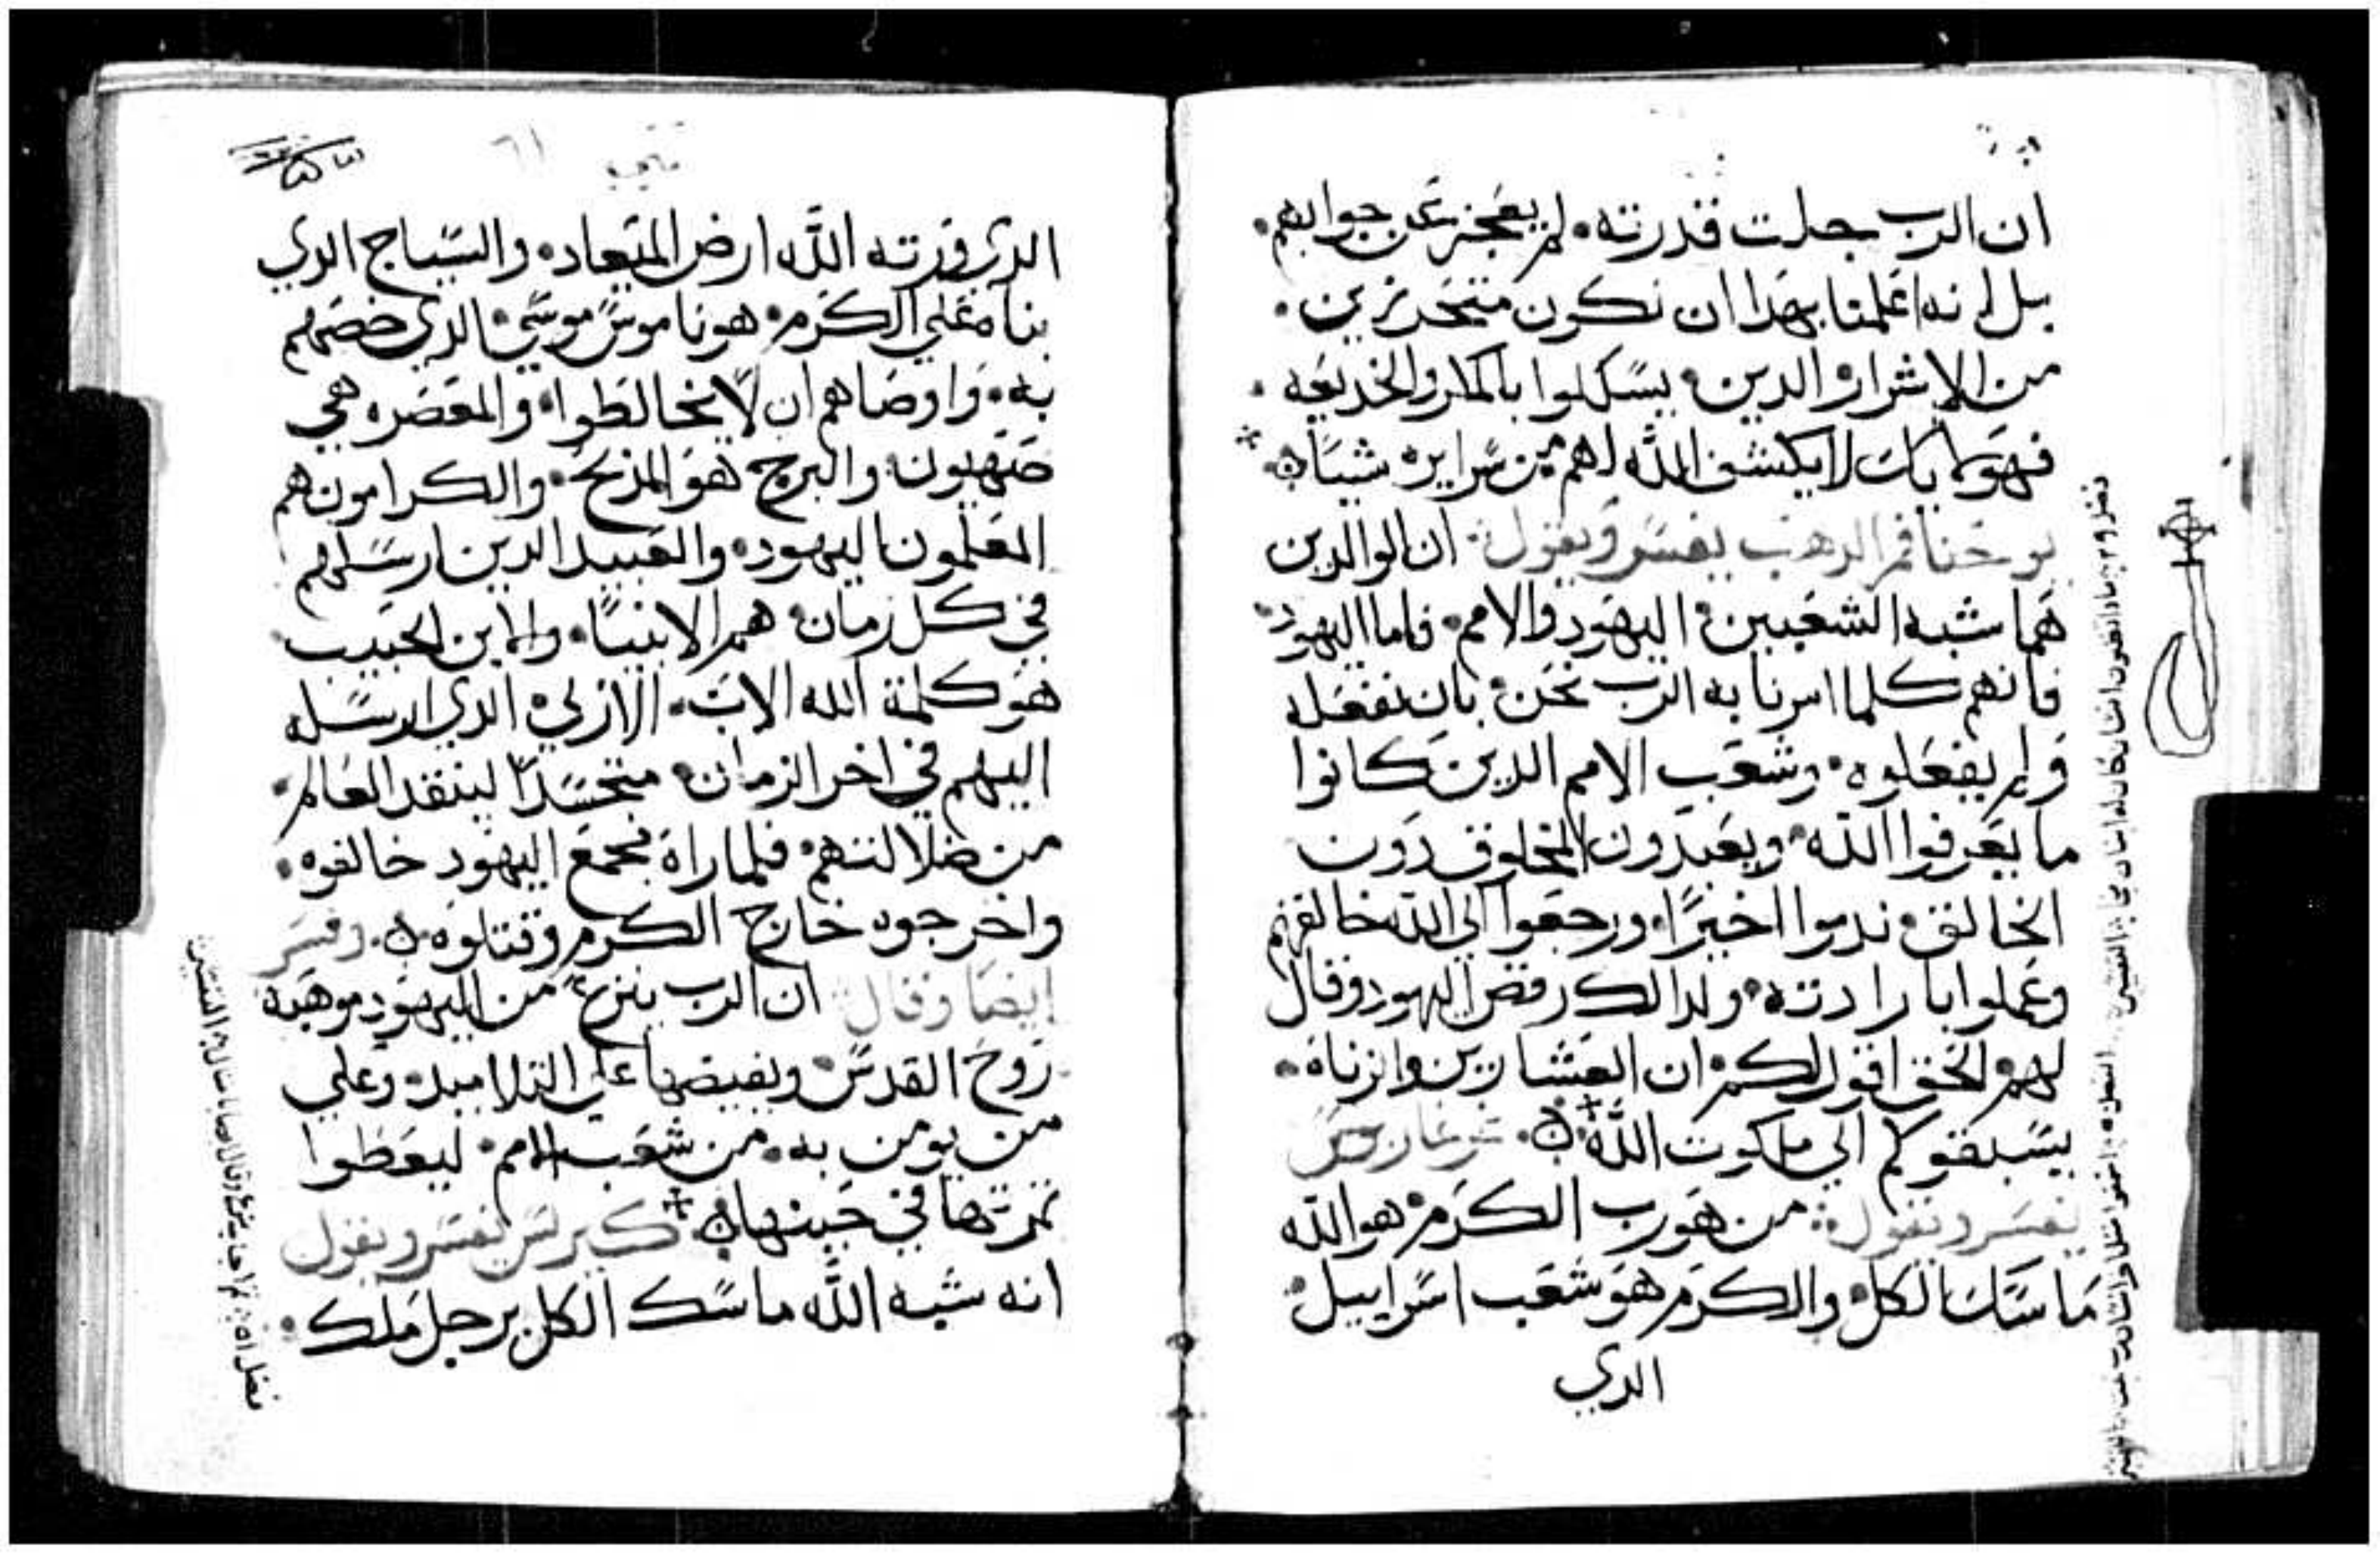 ان الرب جلت قدرته. لم يعجز عن جوابهم.
بل انه اعلمنا بهدا ان نكون متحدرين.
من الاشرار الدين يسكلوا بالمكر والخديعه.
لا يكشف الله لهم من سرايره شيا
يوحنا فم الدهب يفسر ويقول ان الوالدين
هما شبه الشعبين اليهود والامم. فاما اليهود
فانهم كلما امرنا به الرب نحن بان نفعله
ولم يفعلوه. وشعب الامم الدين كانوا
ما يعرفوا الله ويعبدون المخلوق دون
الخالق ندموا اخيرًا. ورجعوا الي الله خالقهم
وعملوا بارادته. ولدالك رفض اليهود وقال
لهم الحق اقول لكم ان العشارين والزناه.
يسبقوكم الي ملكوت الله
يفسر ويقول من هو رب الكرم هو الله
ماسك الكل والكرم هو شعب اسراييل
الدي
متي ٦١
الدي ورته الله ارض الميعاد. والسياج الدي
بناه علي الكرم. هو ناموس موسي الدي خصهم
به. واوصاهم ان لا يخالطوا والمعصره هي
صهيون والبرج هو المدبح. والكرامون هم
المعلمون اليهود. والعبيد الدين ارسلهم
في كل زمان هم الانبيا. والابن الحبيب
هو كلمة الله الاب. الازلي الدي ارسله
اليهم في اخر الزمان متجسدًا لينقد العالم
من ضلالتهم. فلما راه مجمع اليهود خالفوه.
واخرجوه خارج الكرم وقتلوه. وفسر
ايضا وقال ان الرب ينزع من اليهود موهبة
روح القدس ويفيضها علي التلاميد وعلي
من يومن به. من شعب الامم. ليعطوا
تمرتها في حينها كيرلس يفسر ويقول
انه شبه الله ماسك الكل برجل ملك.